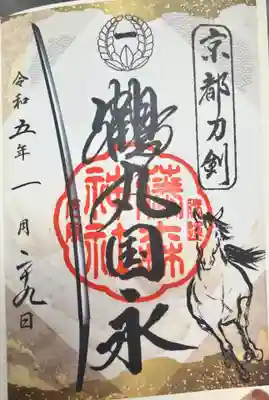 京都刀剣
一
鶴丸国永
藤森
神社
令和五年一月二十九日